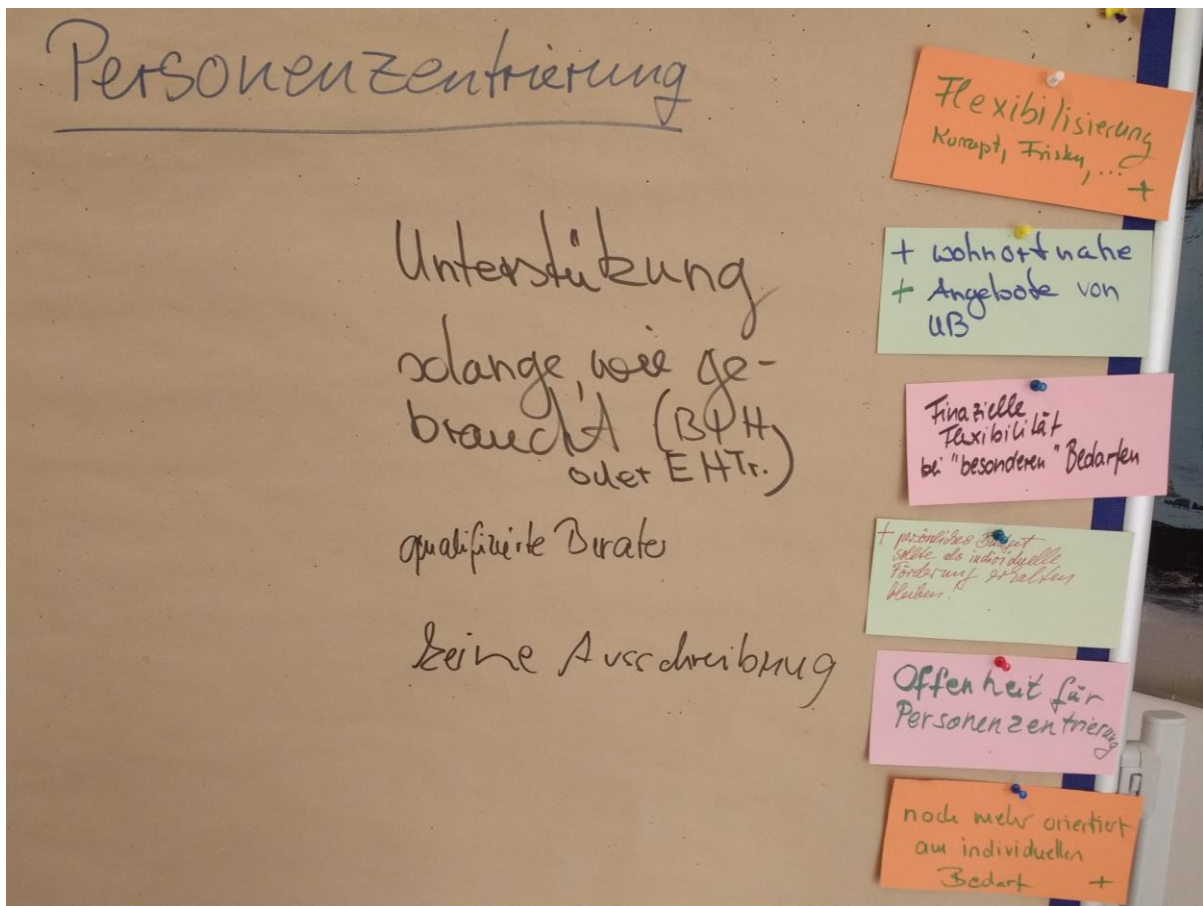 Personenzentrierung
Unterstützung
solange, wie ge-
braucht (BPH
oder EHTr.)
qualifizierte Berater
keine Ausschreibung
Flexibilisierung
Konzept, Fristen, ... +
+ wohnortnahe
+ Angebote von
UB
Finazielle
Flexibilität
bei "besonderen" Bedarfen
+ persönliches Budget
sollte als individuelle
Förderung erhalten
bleiben!
Offenheit für
Personenzentrierung
noch mehr orientiert
am individuellen
Bedarf +